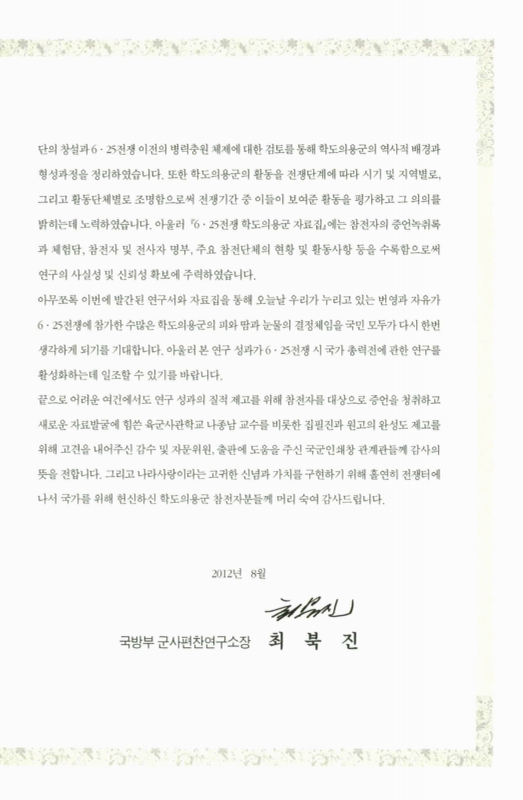 단의 창설과 6·25전쟁 이전의 병력충원 체제에 대한 검토를 통해 학도의용군의 역사적 배경과
형성과정을 정리하였습니다. 또한 학도의용군의 활동을 전쟁단계에 따라 시기 및 지역별로,
그리고 활동단체별로 조명함으로써 전쟁기간 중 이들이 보여준 활동을 평가하고 그 의의를
밝히는데 노력하였습니다. 아울러 『6·25전쟁 학도의용군 자료집』에는 참전자의 증언녹취록
과 체험담, 참전자 및 전사자 명부, 주요 참전단체의 현황 및 활동사항 등을 수록함으로써
연구의 사실성 및 신뢰성 확보에 주력하였습니다.
아무쪼록 이번에 발간된 연구서와 자료집을 통해 오늘날 우리가 누리고 있는 번영과 자유가
6·25전쟁에 참가한 수많은 학도의용군의 피와 땀과 눈물의 결정체임을 국민 모두가 다시 한번
생각하게 되기를 기대합니다. 아울러 본 연구 성과가 6·25전쟁 시 국가 총력전에 관한 연구를
활성화하는데 일조할 수 있기를 바랍니다.
끝으로 어려운 여건에서도 연구 성과의 질적 제고를 위해 참전자를 대상으로 증언을 청취하고
새로운 자료발굴에 힘쓴 육군사관학교 나종남 교수를 비롯한 집필진과 원고의 완성도 제고를
위해 고견을 내어주신 감수 및 자문위원, 출판에 도움을 주신 국군인쇄창 관계관들께 감사의
뜻을 전합니다. 그리고 나라사랑이라는 고귀한 신념과 가치를 구현하기 위해 홀연히 전쟁터에
나서 국가를 위해 헌신하신 학도의용군 참전자분들께 머리 숙여 감사드립니다.
2012년 8월
최북진
국방부 군사편찬연구소장 최 북 진